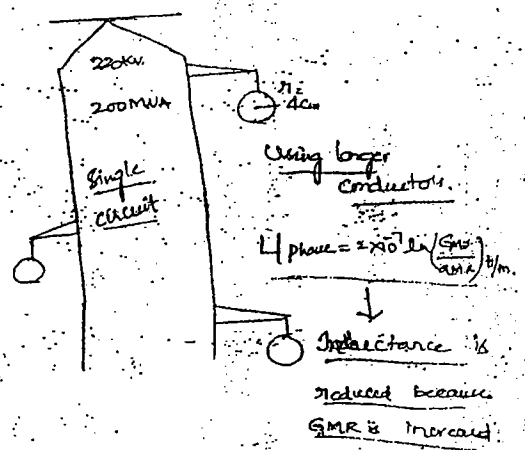 220KV.
200MVA
Single
circuit
r =
4cm
Using larger
conductors.
L/phase = 2×10⁻⁷ ln(GMD/GMR) H/m.
↓
Inductance is
reduced because
GMR is increased.